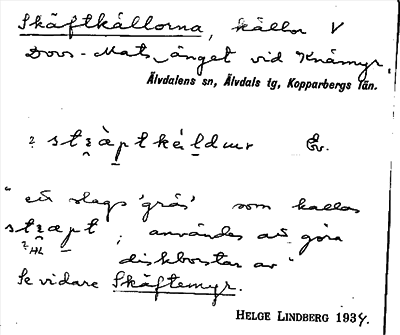 Skäftkällorna, källor V
Dovs-Mats änget vid Knåmyr.
Älvdalens sn, Älvdals tg, Kopparbergs län.
? stɛ̀ptkélduṛ Ev.
"ett slags 'gräs' som kallas
stɛæpt, användes att göra
? HL
diskborstar av"
Se vidare Skäftemyr.
HELGE LINDBERG 1934.